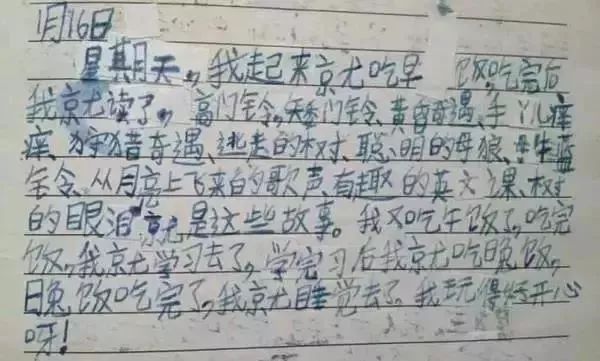 1月16日
星期天,我起来京尤吃早饭,吃完后
我京尤读了,高门铃、矮门铃、黄昏奇遇、手丫儿痒
痒、狩猎奇遇、逃走的树、聪明的母狼、
铃、从月亮上飞来的歌声、有趣的英文课、树
的眼泪京尤是这些故事。我又吃午饭了,吃完
饭,我京尤学习去了,学完习后我京尤吃晚饭,
晚饭吃完了,我京尤睡觉去了。我玩得好开心
呀!